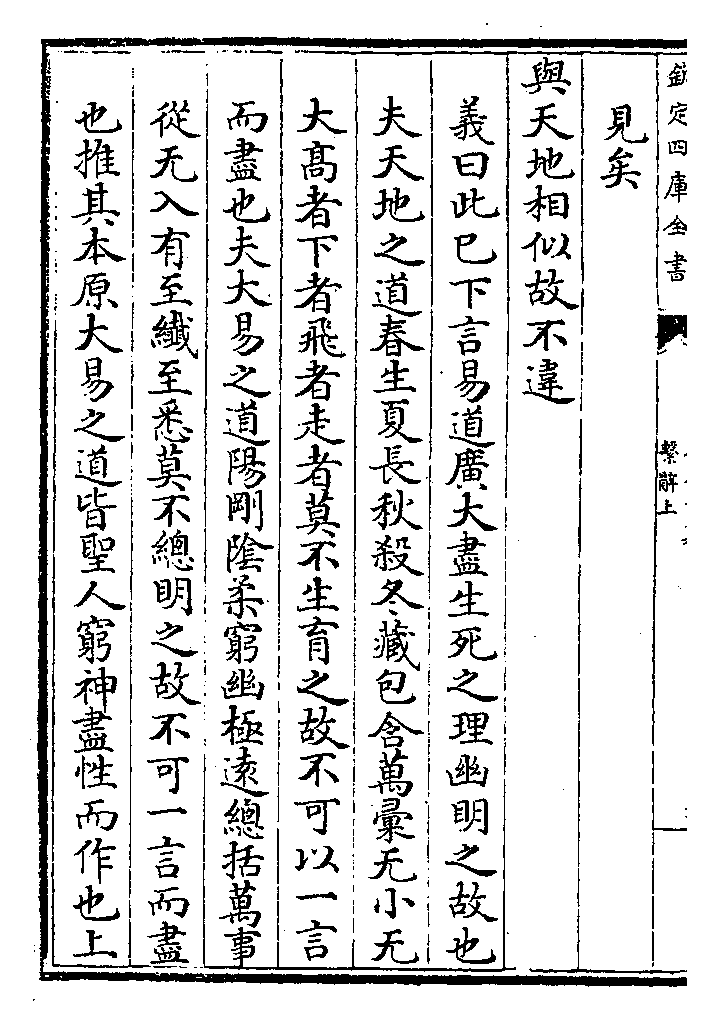 欽定四庫全書
繫辭上
見矣
與天地相似故不違
義曰此已下言易道廣大盡生死之理幽明之故也
夫天地之道春生夏長秋殺冬藏包含萬彚无小无
大髙者下者飛者走者莫不生育之故不可以一言
而盡也夫大易之道陽剛隂柔窮幽極逺總括萬事
從无入有至纖至悉莫不總明之故不可一言而盡
也推其本原大易之道皆聖人窮神盡性而作也上